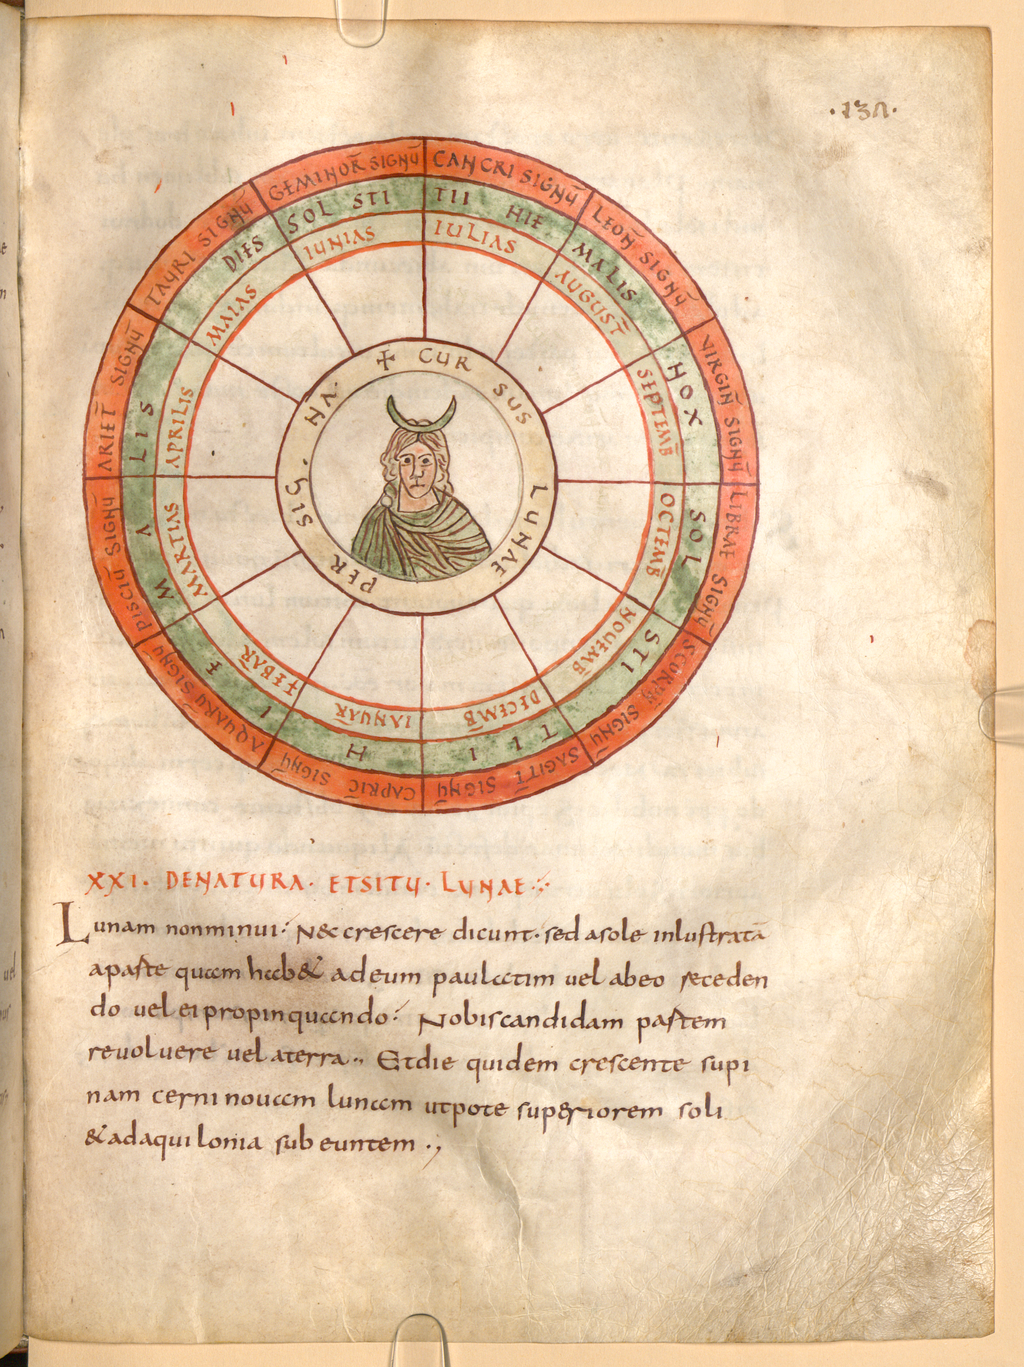 ·132·
GEMINOR̄ SIGNŪ
CANCRI SIGNŪ
LEON̄ SIGNŪ
VIRGIN̄ SIGNŪ
LIBRAE SIGNŪ
SIGNŪ
SAGIT̄ SIGNŪ
CAPRIC̄ SIGNŪ
AQUARII SIGNŪ
PISCIŪ SIGNŪ
ARIET̄ SIGNŪ
TAURI SIGNŪ
SOL STI
TII HIE
MALIS
HOX
SOL
STI
TII
H
I
E
M
A
LIS
DIES
IUNIAS
IULIAS
AUGUST̄
SEPTEMB̄
OCTEMB̄
NOUEMB̄
DECEMB̄
IANUAR̄
FEBAR̄
MARTIAS
APRILIS
MAIAS
+ CUR SUS LUNAE PER SIG. NA.
XXI. DENATURA. ETSITU. LUNAE
Lunam nonminui. N& crescere dicunt. sed asole inlustratā
aparte quam hab& adeum paulatim uel abeo seceden
do uel ei propinquando. Nobiscandidam partem
reuoluere uel aterra. Etdie quidem crescente supi
nam cerni nouam lunam utpote superiorem soli
& adaquilonia sub euntem .,